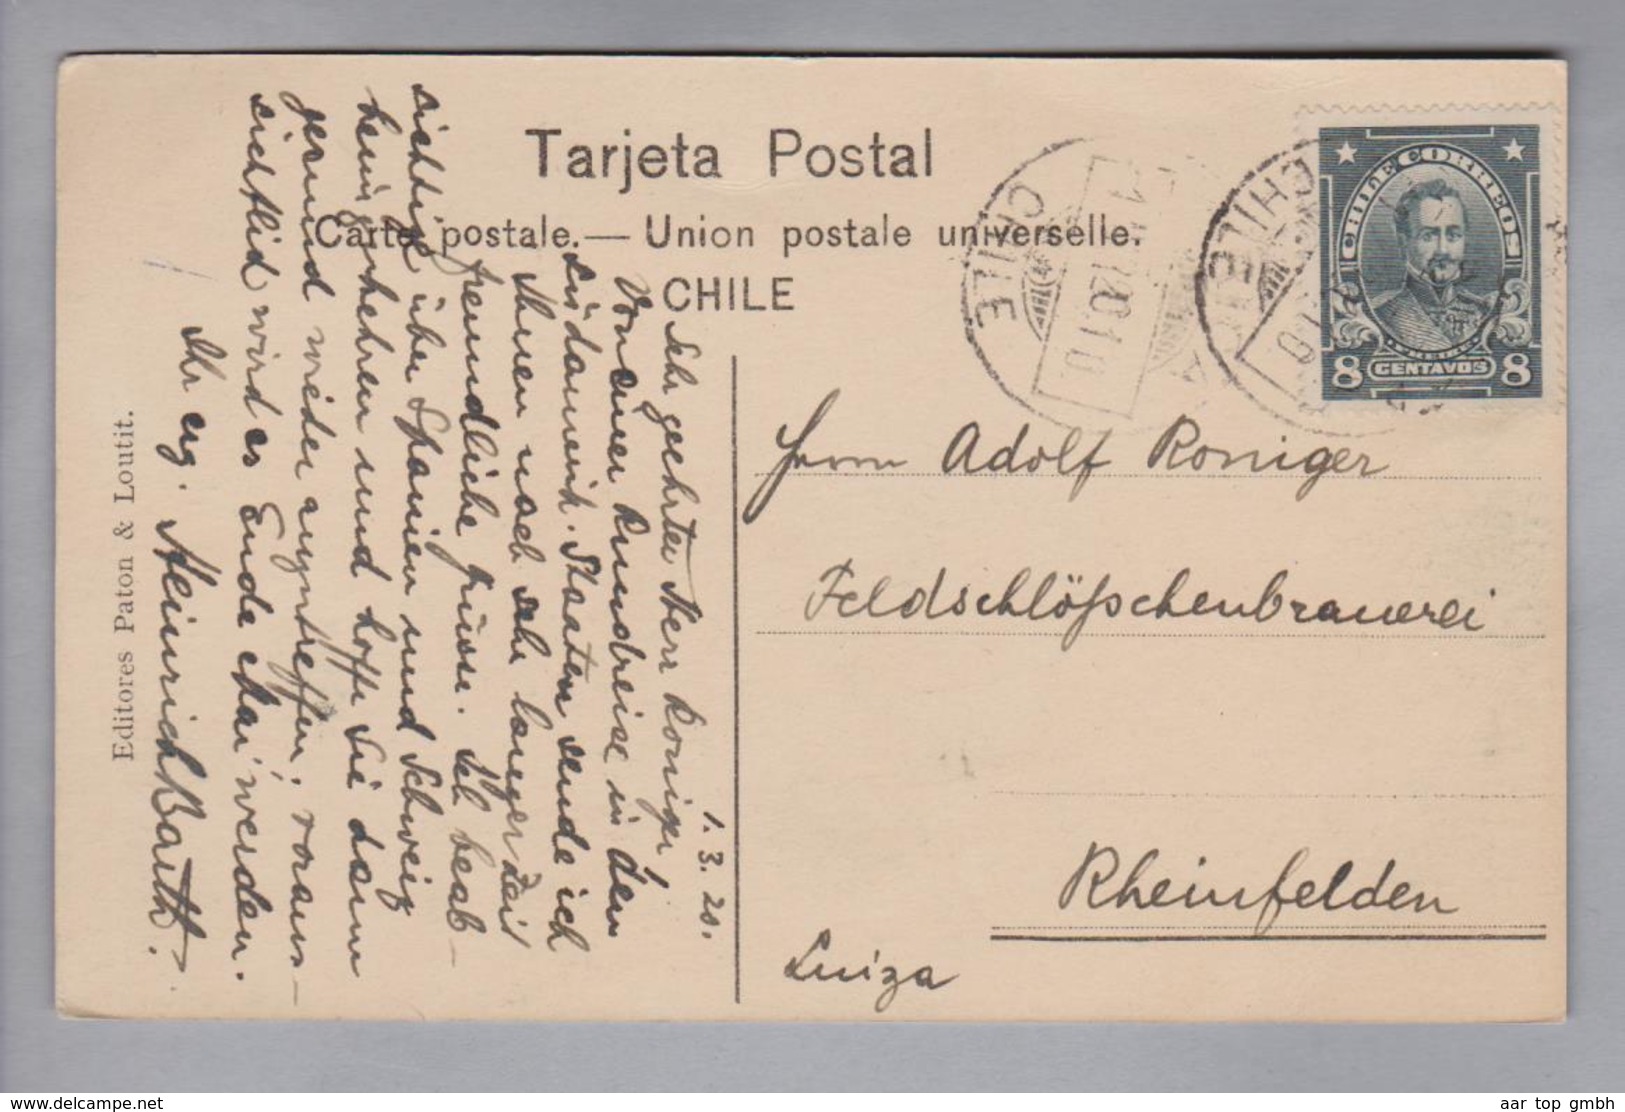 Tarjeta Postal
Carte postale. — Union postale universelle.
CHILE
CHILE CORREOS
FREIRE
8 CENTAVOS 8
CHILE
CHILE
1. 3. 20.
Sehr geehrter Herr Roniger!
Von einer Rundreise in den
Südamerik. Staaten sende ich
Ihnen nach sehr langer Zeit
freundliche Grüsse. Ich beab-
sichtige über Spanien und Schweiz
heimzukehren und hoffe Sie dann
gesund wieder anzutreffen; voraus-
sichtlich wird es Ende Mai werden.
Ihr erg. Heinrich Barth.
Editores Paton & Loutit.
Herrn Adolf Roniger
Feldschlößchenbrauerei
Rheinfelden
Suiza
www.delcampe.net
aar top gmbh